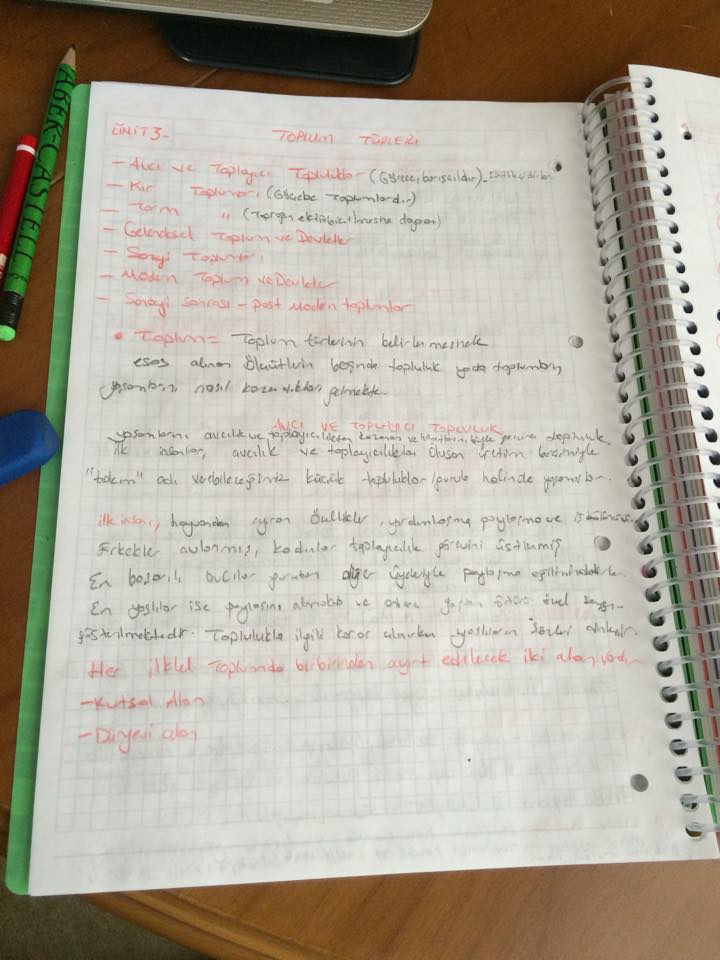 ABER-CASTELL
ÜNİT 3-
TOPLUM TÜRLERİ
- Avcı ve Toplayıcı Topluluklar (Göçebe, barışçıldır)
- Kır Toplumları (Göçebe Toplumlardır)
- Tarım " (Toprağın ekilip biçilmesine dayanır)
- Geleneksel Toplum ve Devletler
- Sanayi Toplumları
- Modern Toplum ve Devletler
- Sanayi sonrası - post modern toplumlar
• Toplum = Toplum türlerinin belirlenmesinde
esas alınan Ölçütlerin başında topluluk yada toplumların
yaşamlarını nasıl kazandıkları gelmekte.
AVCI VE TOPLAYICI TOPLULUK
yaşamlarını avcılık ve toplayıcılıktan kazanan ve hayatlarını böyle geçiren topluluk
İlk insanlar, avcılık ve toplayıcılıkla Oluşan üretim biçimiyle
"takım" adı verebileceğimiz küçük topluluklar halinde yaşamışlar.
ilk insanı, hayvandan ayıran Özellikler, yardımlaşma paylaşma ve işbölümü
Erkekler avlanmış, kadınlar toplayıcılık görevini üstlenmiş
En başarılı avcılar diğer üyeleriyle paylaşma eğilimindedirler.
En yaşlılar ise paylarını almakta ve onlara özel saygı
gösterilmektedir. Toplulukla ilgili karar alınırken yaşlıların sözleri
Her ilkel Toplumda birbirinden ayırt edilecek iki alan vardır
- Kutsal Alan
- Dünyevi alan